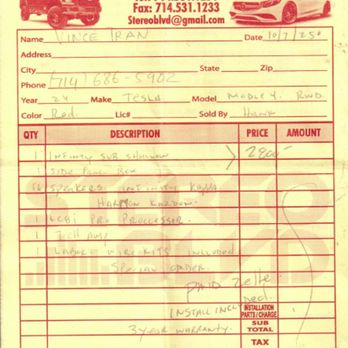 Fax: 714.531.1233
Stereoblvd@gmail.com
Name VINCE TRAN Date 10/7/25
Address
City State Zip
Phone (714) 686-5902
Year 24 Make TESLA Model MODEL Y. RWD
Color Red Lic# Sold By
QTY DESCRIPTION PRICE AMOUNT
1 INFINITY SUB 2800
1 SIDE BOX
SPEAKERS INFINITY KAPPA
HARMON KARDON
1 PRO PROCESSOR.
1 AMP
1 LABOR WIRE KITS INCLUDED
SPECIAL ORDER
PAID Zelle
INSTALL INCL INSTALLATION
PARTS/CHARGE
3 YEAR WARRANTY. SUB
TOTAL
TAX